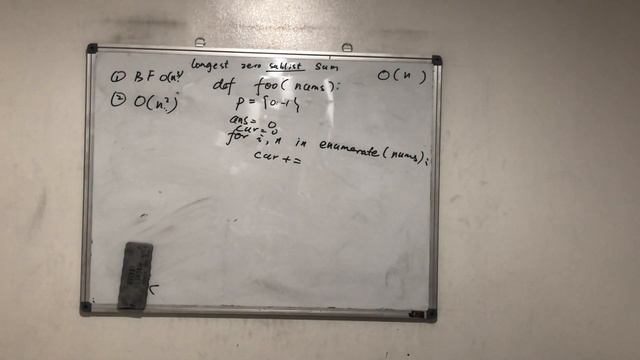 longest zero sublist sum
O(n)
① BF O(n³)
② O(n²)
def foo(nums):
p = {0:-1}
ans = 0
cur = 0
for i, n in enumerate(nums):
cur +=